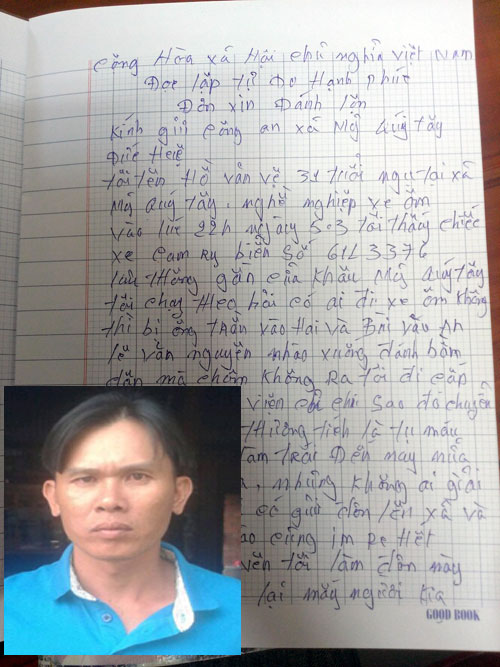 Cộng Hòa xã Hội chủ nghĩa việt Nam
Độc lập tự Do Hạnh phúc
Đơn xin Đánh lộn
Kính gửi công an xã Mỹ Quý tây
Đức Huệ
tôi tên Hồ văn vẽ 31 tuổi ngụ tại xã
Mỹ Quý tây. nghề nghiệp xe ôm
vào lúc 22h ngày 5-3 tôi thấy chiếc
xe Camry biển số 61L 3376
lưu thông gần cửa khẩu Mỹ Quý tây
tôi chạy theo hỏi có ai đi xe ôm không
thì bị ông trần vào Hai và Bùi văn An
lê văn nguyên nhào xuống đánh bầm
dập mà chôm không ra tôi đi cấp
viện chợ chỉ sao đó chuyển
thương tích là tụ máu
tam trái Đến nay nữa
, nhưng không ai giải
có gửi đơn lên xã và
nào cũng im re hết
vên tôi làm đơn này
lại mấy người kia
GOOD BOOK